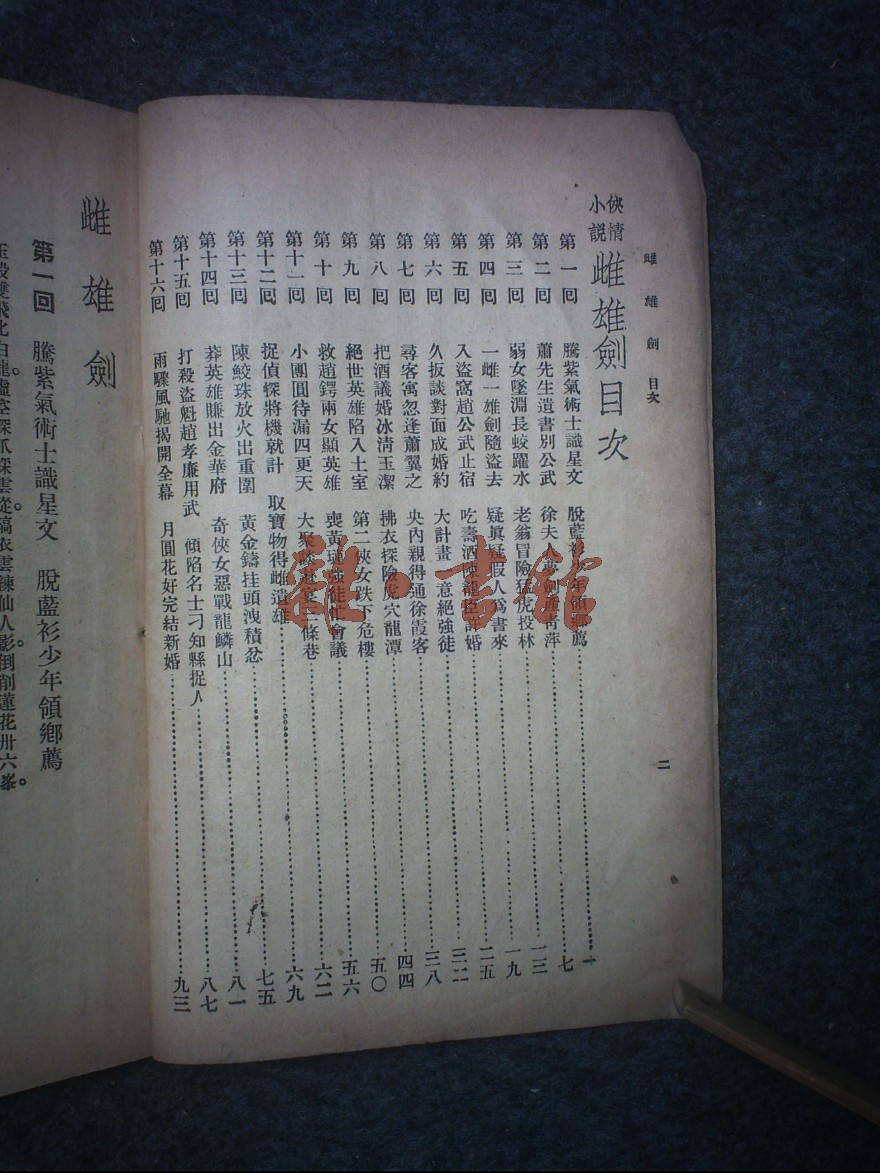 雌雄劍 目次
二
俠情小說 雌雄劍目次
第一囘 騰紫氣術士識星文 脫藍衫少年領鄉薦 一
第二囘 蕭先生遺書別公武 徐夫人夢劍產青萍 七
第三囘 弱女墜淵長蛟躍水 老翁冒險猛虎投林 一三
第四囘 一雌一雄劍隨盜去 疑真疑假人爲書來 一九
第五囘 入盜窩趙公武止宿 吃壽酒陳龍臣許婚 二五
第六囘 久扳談對面成婚約 大計畫一意絕強徒 三二
第七囘 尋客寓忽逢蕭翼之 央內親得通徐霞客 三八
第八囘 把酒議婚冰淸玉潔 拂衣探險虎穴龍潭 四四
第九囘 絕世英雄陷入土室 第二俠女跌下危樓 五〇
第十囘 救趙鍔兩女顯英雄 喪黃璉強徒 會議 五六
第十一囘 小團圓待漏四更天 大聚 三條巷 六二
第十二囘 捉偵探將機就計 取寶物得雌遺雄 六九
第十三囘 陳鮫珠放火出重圍 黃金鑄挂頭洩積忿 七五
第十四囘 莽英雄賺出金華府 奇俠女惡戰龍鱗山 八一
第十五囘 打殺盜魁趙孝廉用武 傾陷名士刁知縣捉人 八七
第十六囘 雨驟風馳揭開全幕 月圓花好完結新婚 九三
雌雄劍
第一回 騰紫氣術士識星文 脫藍衫少年領鄉薦
龍一書館